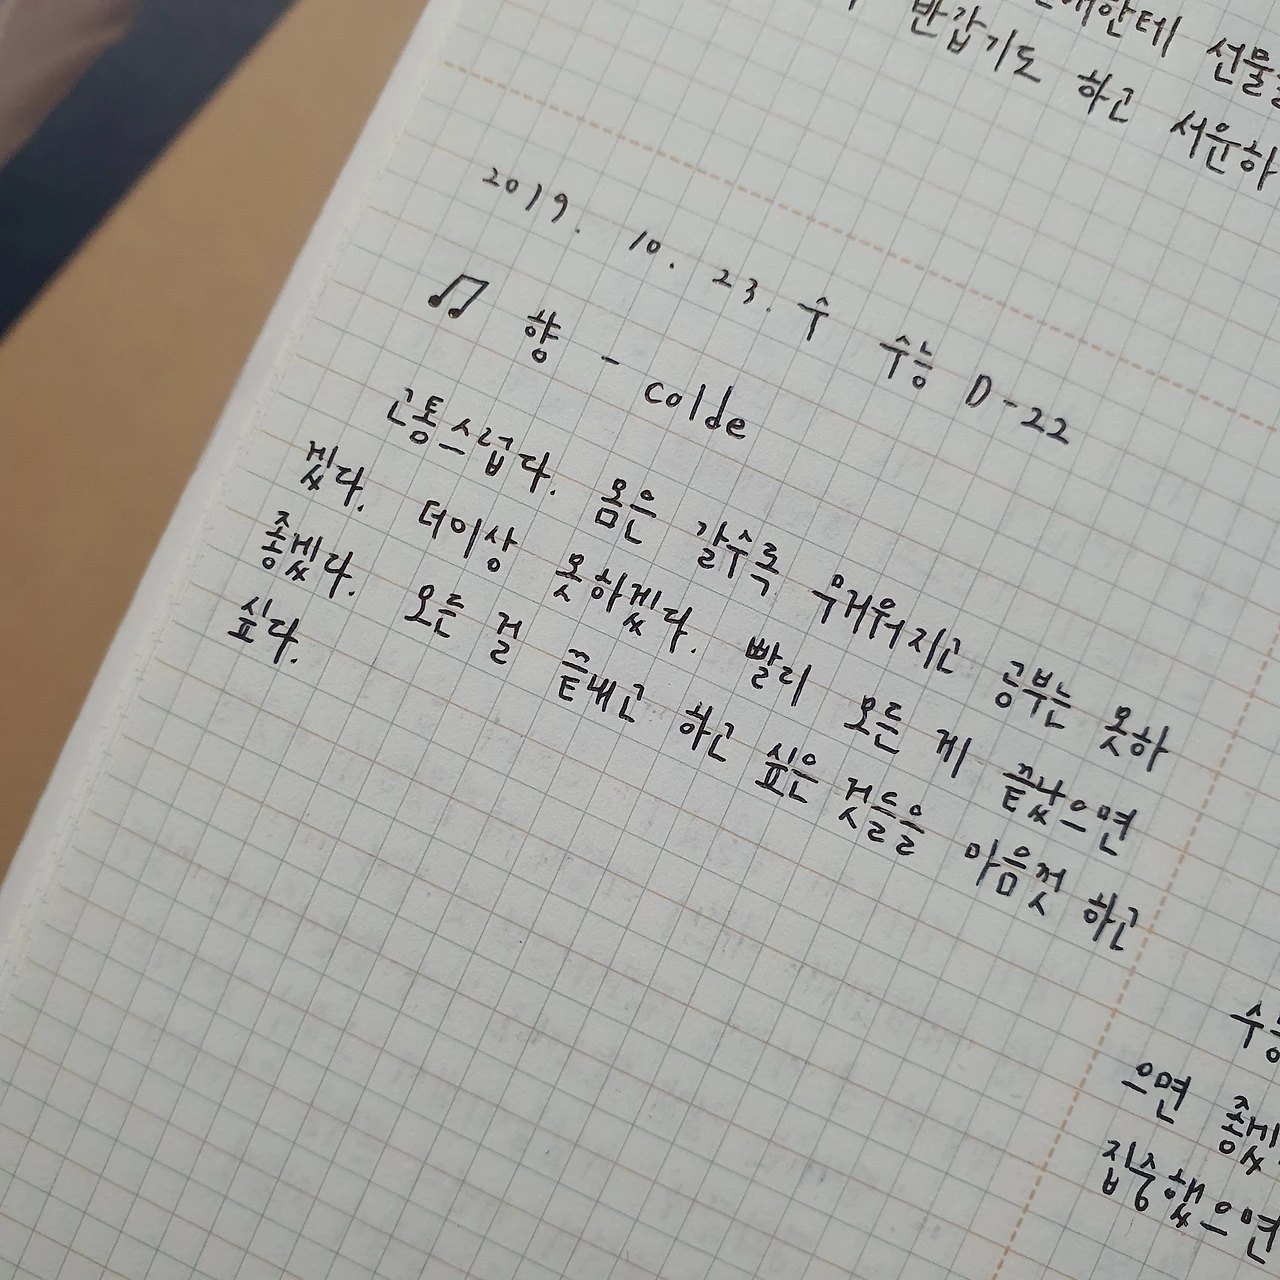 한테 선물
반갑기도 하고 서운하
2019. 10. 23. 수 수능 D-22
♫ 향 - colde
고통스럽다. 몸은 갈수록 무거워지고 공부는 못하
겠다. 더이상 못하겠다. 빨리 모든 게 끝났으면
좋겠다. 모든 걸 끝내고 하고 싶은 것들을 마음껏 하고
싶다.
수능
으면 좋겠
집중했으면